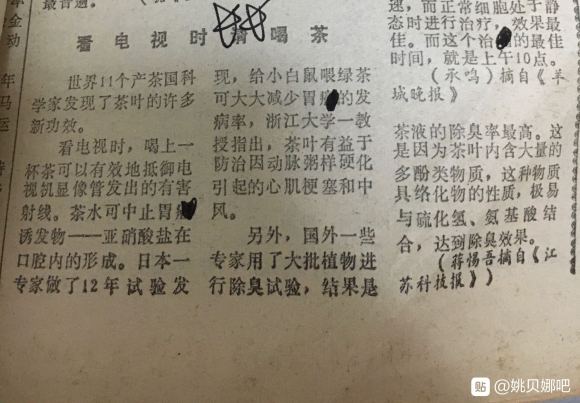 最普遍。
看电视时请喝茶
世界11个产茶国科
学家发现了茶叶的许多
新功效。
看电视时，喝上一
杯茶可以有效地抵御电
视机显像管发出的有害
射线。茶水可中止胃
诱发物——亚硝酸盐在
口腔内的形成。日本一
专家做了12年试验发
现，给小白鼠喂绿茶
可大大减少胃癌的发
病率，浙江大学一教
授指出，茶叶有益于
防治因动脉粥样硬化
引起的心肌梗塞和中
风。
另外，国外一些
专家用了大批植物进
行除臭试验，结果是
速，而正常细胞处于静
态时进行治疗，效果最
佳。而这个治的最佳
时间，就是上午10点。
（承鸣）摘自《羊
城晚报》
茶液的除臭率最高。这
是因为茶叶内含大量的
多酚类物质，这种物质
具络化物的性质，极易
与硫化氢、氨基酸结
合，达到除臭效果。
（蒋惕吾摘自《江
苏科技报》）
年
全
动
年
马
运
贴 @姚贝娜吧